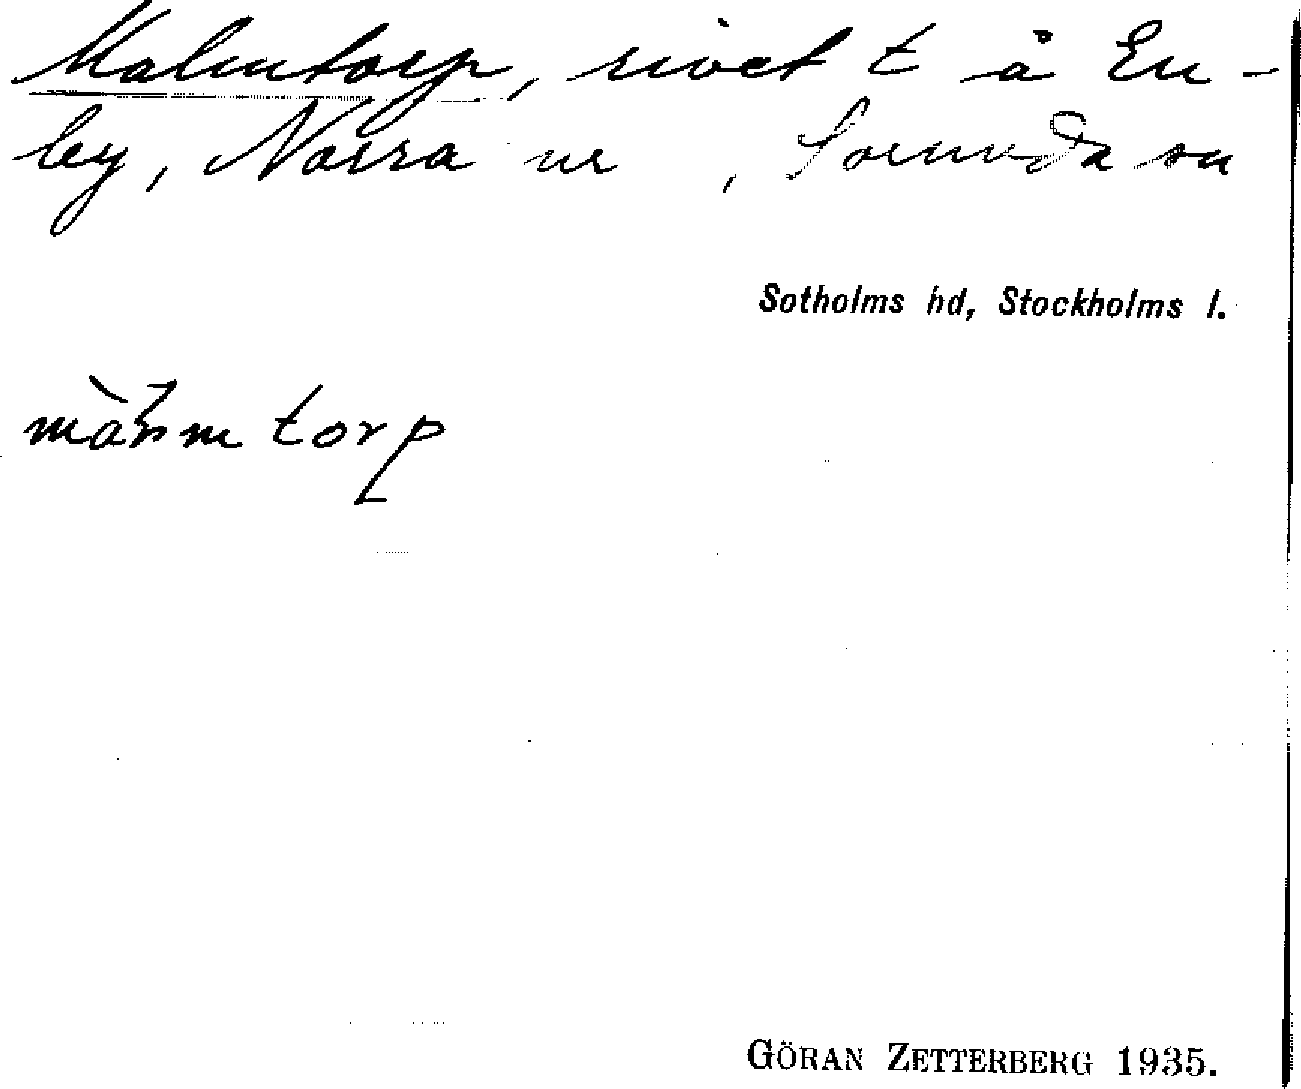 Malmtorp, rivet t å En-
by, Norra nr , Sorunda sn
Sotholms hd, Stockholms l.
torp
GÖRAN ZETTERBERG 1935.